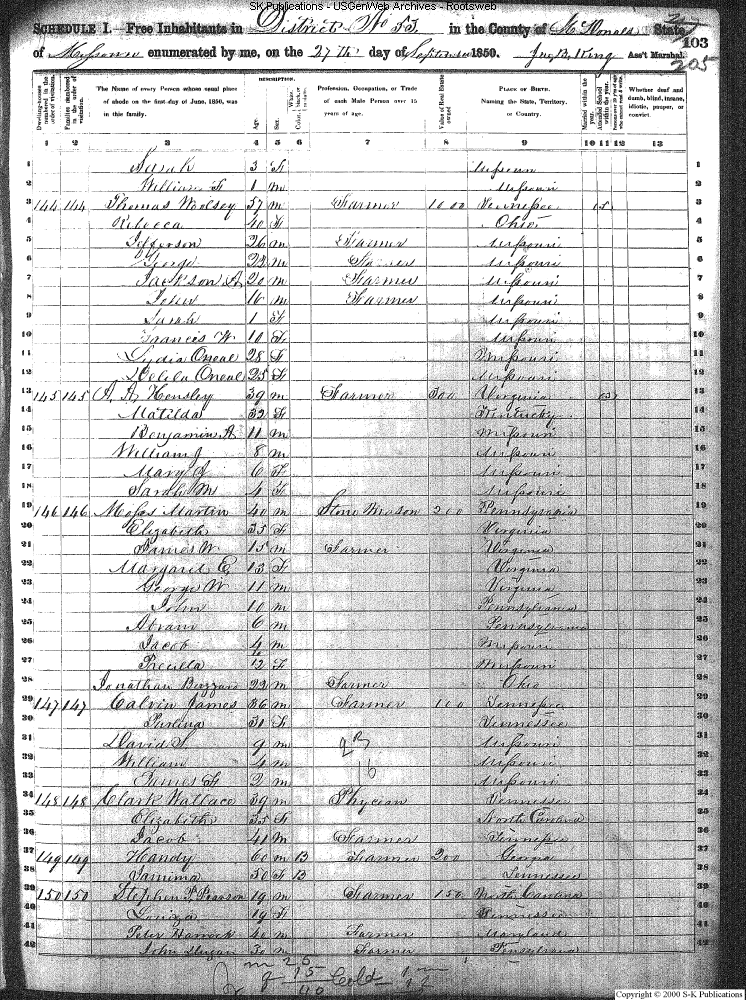 SK Publications - USGenWeb Archives - Rootsweb
SCHEDULE I.—Free Inhabitants in District No 53 in the County of McDonald State
of Missouri enumerated by me, on the 27th day of September 1850. King Ass't Marshal.
103
205
Dwelling-houses numbered in the order of visitation.
Families numbered in the order of visitation.
The Name of every Person whose usual place of abode on the first day of June, 1850, was in this family.
DESCRIPTION.
Age.
Sex.
White, black, or mulatto.
Color,
Profession, Occupation, or Trade of each Male Person over 15 years of age.
Value of Real Estate owned
PLACE OF BIRTH. Naming the State, Territory, or Country.
Married within the year.
Attended School within the year.
Whether deaf and dumb, blind, insane, idiotic, pauper, or convict.
1 2 3 4 5 6 7 8 9 10 11 12 13
1 Sarah 3 F Missouri 1
2 William F 1 m Missouri 2
3 144 144 Thomas Woolsey 57 m Farmer 1000 Tennessee 3
4 Rebecca 40 F Ohio 4
5 Jefferson 26 m Farmer Missouri 5
6 George 22 m Farmer Missouri 6
7 Jackson A 20 m Farmer Missouri 7
8 John 16 m Farmer Missouri 8
9 Sarah 1 F Missouri 9
10 Frances W 10 F Missouri 10
11 Lydia Oneal 28 F Missouri 11
12 Oneal 25 F Missouri 12
13 145 145 A. A. Hensley 39 m Farmer 300 Virginia 13
14 Matilda 32 F Kentucky 14
15 Benjamin A 11 m Missouri 15
16 William J 8 m Missouri 16
17 Mary J 6 F Missouri 17
18 Sarah M 4 F Missouri 18
19 146 146 Moses Martin 40 m Stone Mason 200 Pennsylvania 19
20 Elizabeth 35 F Virginia 20
21 James W. 15 m Farmer Virginia 21
22 Margaret E 13 F Virginia 22
23 George W 11 m Virginia 23
24 John 10 m Pennsylvania 24
25 Abram 6 m Pennsylvania 25
26 Jacob 4 m Missouri 26
27 12 F Missouri 27
28 Jonathan Buzzard 22 m Farmer Ohio 28
29 147 147 Calvin James 36 m Farmer 100 Tennessee 29
30 31 F Tennessee 30
31 David S. 9 m Missouri 31
32 William 4 m Missouri 32
33 James F 2 m Missouri 33
34 148 148 Clark Wallace 39 m Phycian Tennessee 34
35 Elizabeth 35 F North Carolina 35
36 Jacob 41 m Farmer Tennessee 36
37 149 149 Handy 60 m B Farmer 200 Georgia 37
38 Jamima 50 F B Tennessee 38
39 150 150 Stephen P. Pearson 19 m Farmer 150 North Carolina 39
40 Louiza 19 F Tennessee 40
41 Peter 40 m Farmer Maryland 41
42 John 30 m Farmer Pensylvania 42
m 25
15
40
Copyright © 2000 S-K Publications